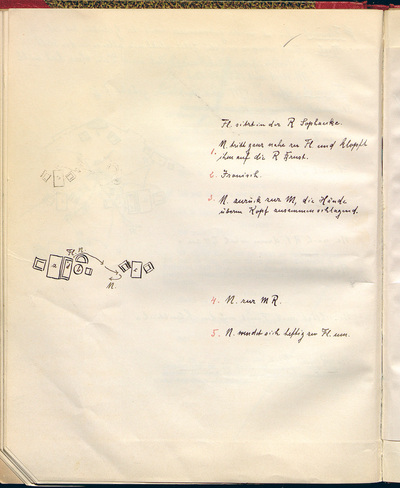 Fl. sitzt in der R Sophaecke.
1. N. tritt ganz nahe zu Fl. und klopft
ihm auf die R Brust.
2. Ironisch.
3. N. zurück zur M, die Hände
überm Kopf zusammenschlagend.
Fl. N.
N.
4. N. zur M R.
5. N. wendet sich heftig zu Fl. um.